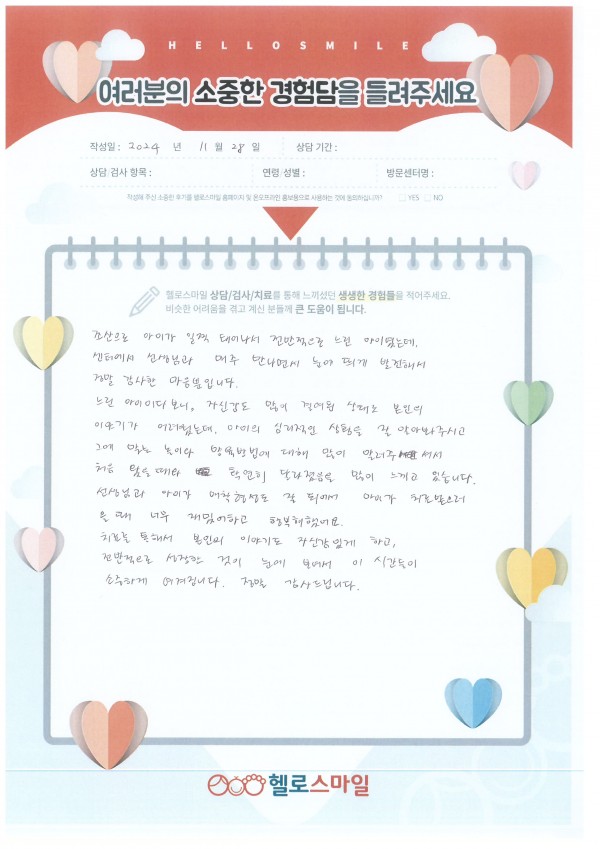 HELLOSMILE
여러분의 소중한 경험담을 들려주세요
작성일 : 2024 년 11 월 28 일 상담 기간 :
상담 검사 항목 : 연령/성별 : 방문센터명 :
작성해 주신 소중한 후기를 헬로스마일 홈페이지 및 온오프라인 홍보용으로 사용하는 것에 동의하십니까? YES NO
헬로스마일 상담/검사/치료를 통해 느끼셨던 생생한 경험들을 적어주세요.
비슷한 어려움을 겪고 계신 분들께 큰 도움이 됩니다.
조산으로 아이가 일찍 태어나서 전반적으로 느린 아이였는데,
센터에서 선생님과 매주 만나면서 눈에 띄게 발전해서
정말 감사한 마음뿐입니다.
느린 아이이다 보니, 자신감도 많이 결여된 상태로 본인의
이야기가 어려웠는데, 아이의 심리적인 상황을 잘 알아봐주시고
그에 맞는 놀이와 양육방법에 대해 많이 알려주셔서
처음 왔을 때와 확연히 달라졌음을 많이 느끼고 있습니다.
선생님과 아이가 애착형성도 잘 되어서 아이가 치료받으러
올 때 너무 재밌어하고 행복해했어요.
치료를 통해서 본인의 이야기도 자신감있게 하고,
전반적으로 성장한 것이 눈에 보여서 이 시간들이
소중하게 여겨집니다. 정말 감사드립니다.
헬로스마일